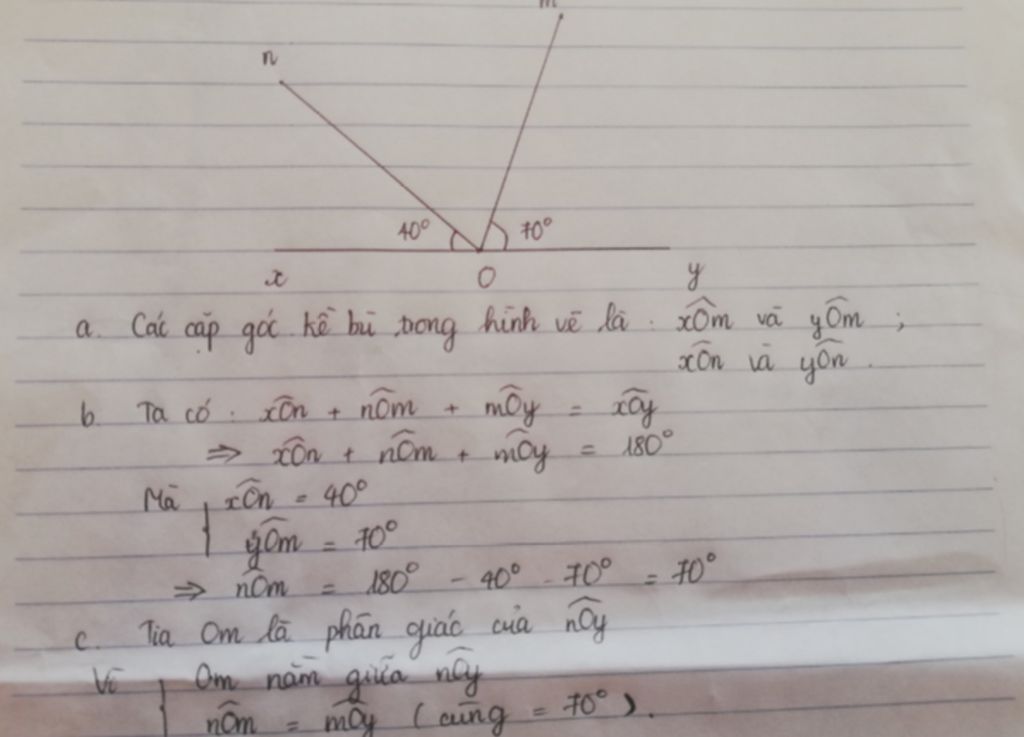 m
n
40° 70°
x O y
a. Các cặp góc kề bù trong hình vẽ là : xÔm và yÔm ;
xÔn và yÔn .
b. Ta có : xÔn + nÔm + mÔy = xÔy
⇒ xÔn + nÔm + mÔy = 180°
Mà { xÔn = 40°
yÔm = 70°
⇒ nÔm = 180° - 40° - 70° = 70°
c. Tia Om là phân giác của nÔy
Vì { Om nằm giữa nÔy
nÔm = mÔy ( cùng = 70° ).